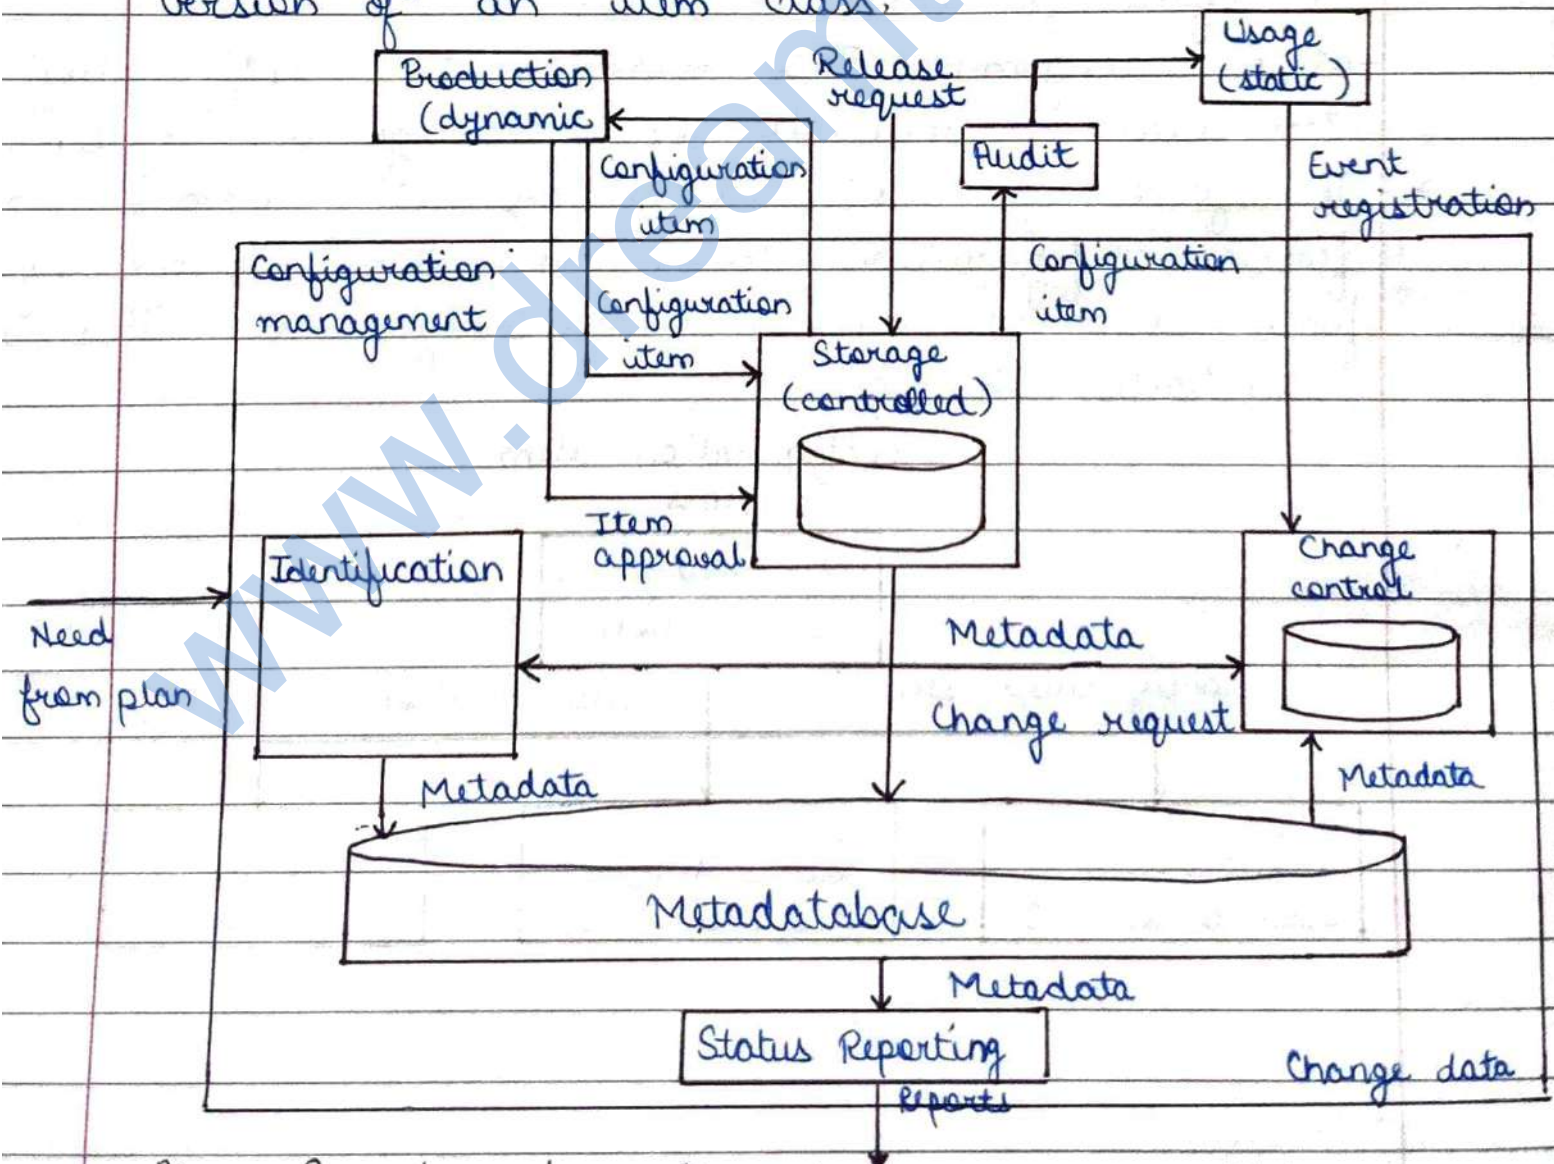 version of an item class.
Production
(dynamic
Release
request
Usage
(static)
Audit
Configuration
item
Event
registration
Configuration
management
Configuration
item
Configuration
item
Storage
(controlled)
Item
approval
Identification
Change
control
Need
from plan
Metadata
Change request
Metadata
Metadata
Metadatabase
Metadata
Status Reporting
Change data
Reports
www.dream